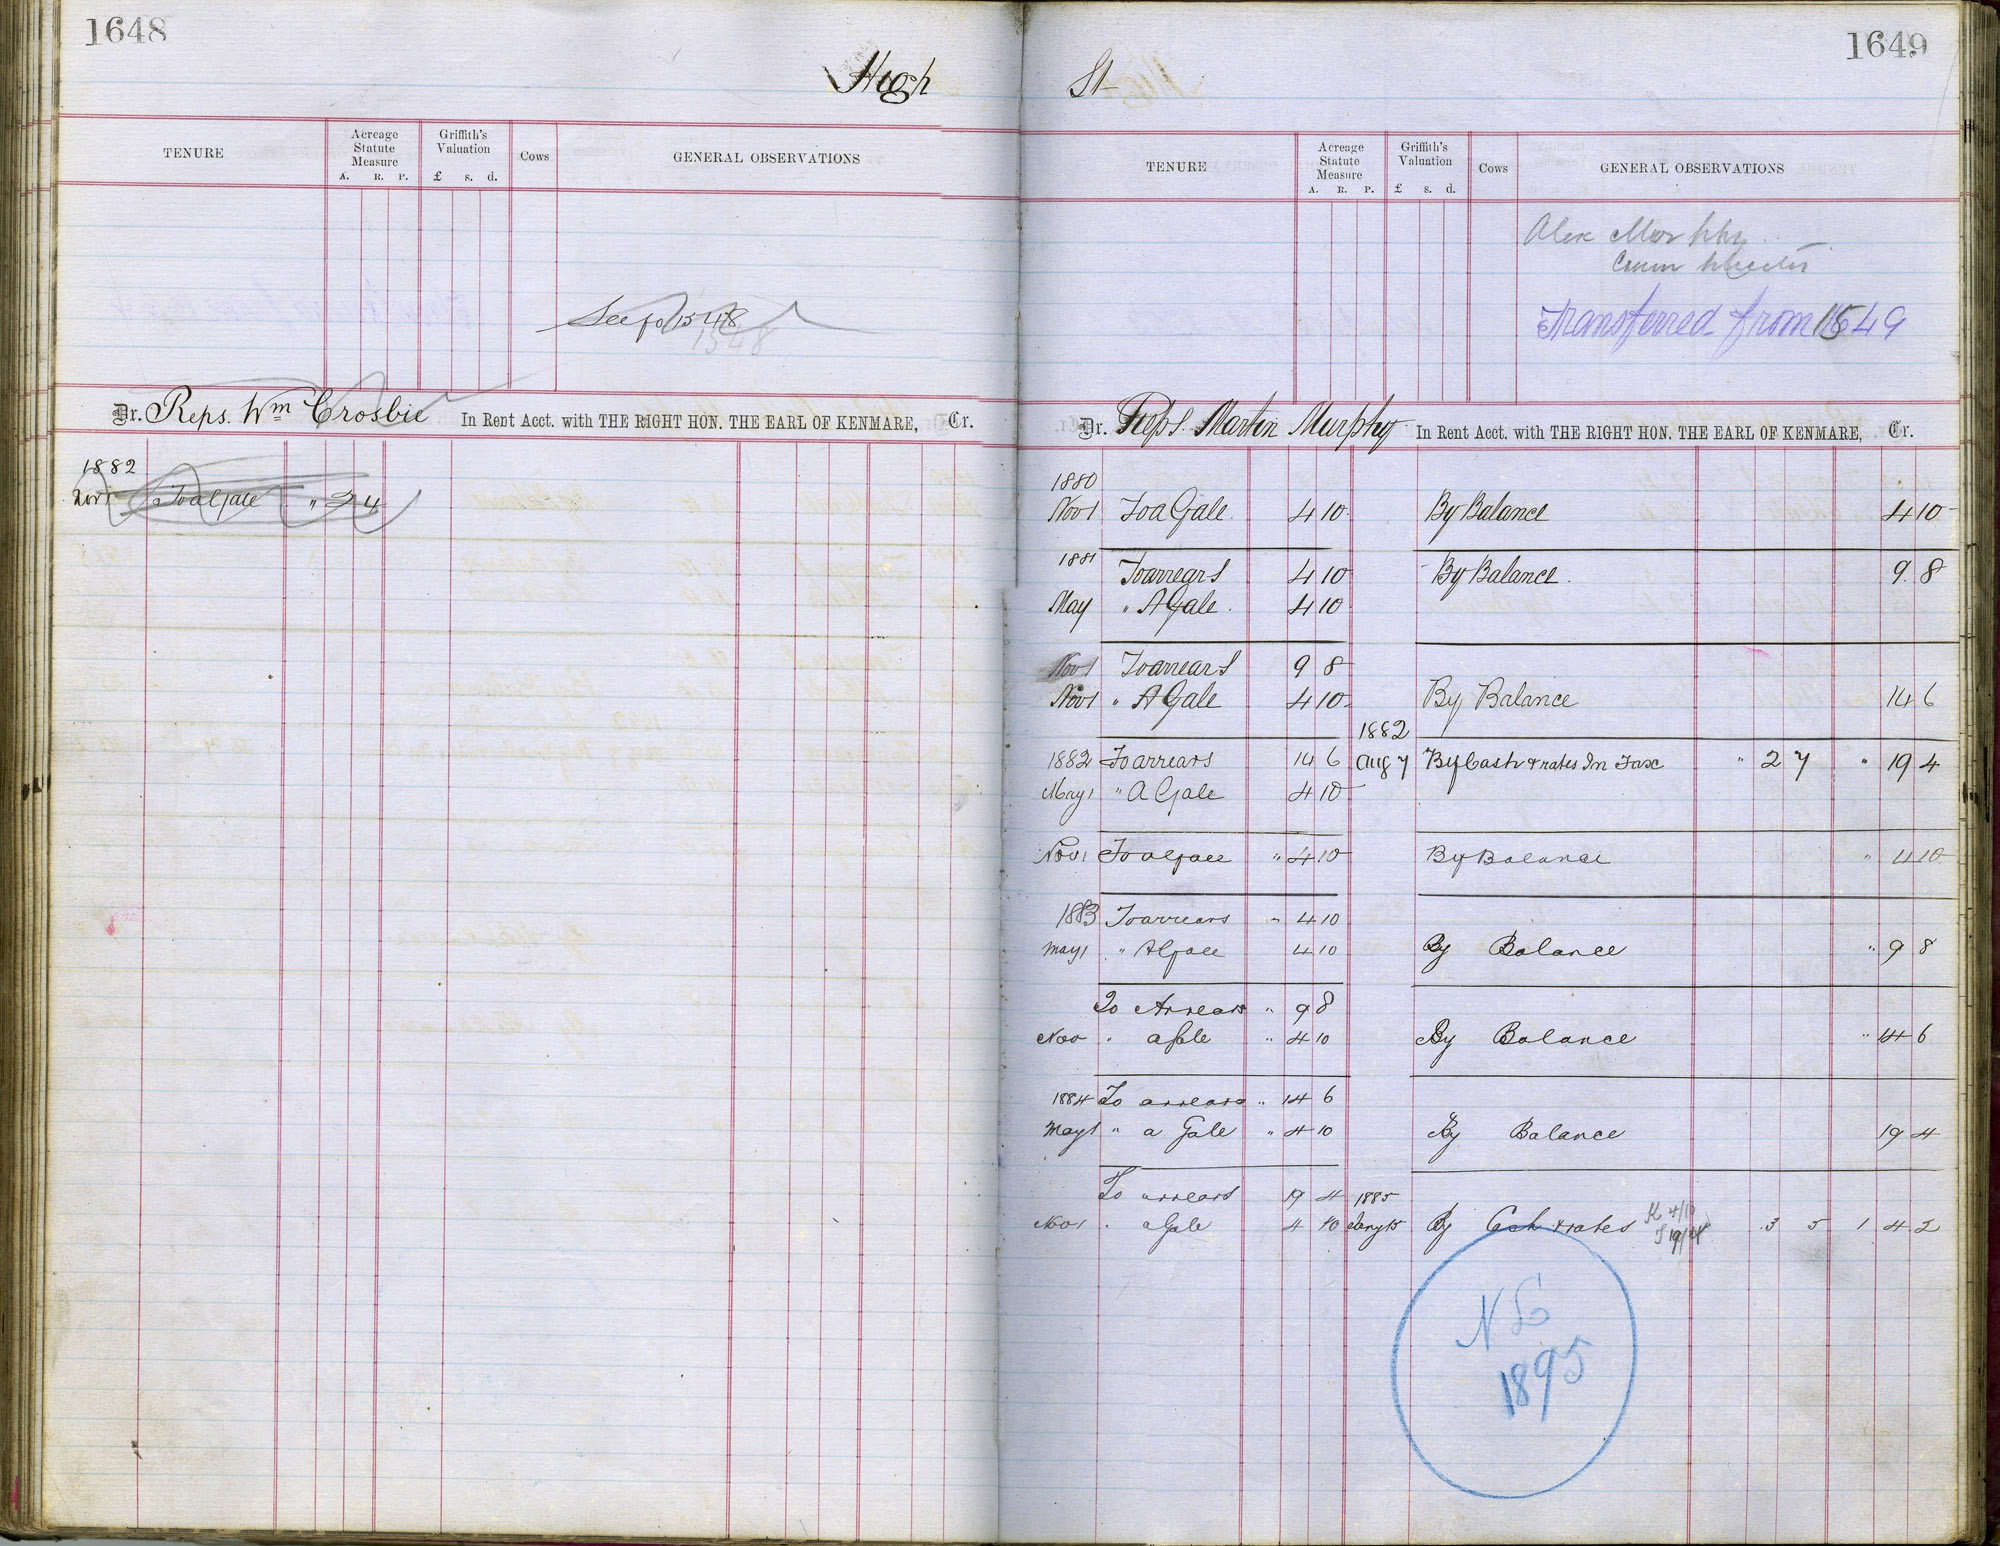 1648
High
TENURE
Acreage Statute Measure
A. R. P.
Griffith's Valuation
£ s. d.
Cows
GENERAL OBSERVATIONS
See fo 1548
1548
Dr. Reps. Wm Crosbie In Rent Acct. with THE RIGHT HON. THE EARL OF KENMARE, Cr.
1882
Nov 1 To a Gale " 2 4
1649
St
TENURE
Acreage Statute Measure
A. R. P.
Griffith's Valuation
£ s. d.
Cows
GENERAL OBSERVATIONS
Alex Murphy
Transferred from 1549
Dr. Reps. Martin Murphy In Rent Acct. with THE RIGHT HON. THE EARL OF KENMARE, Cr.
1880
Nov 1 To a Gale 4 10 By Balance 4 10
1881 To arrears 4 10 By Balance 9 8
May " A Gale 4 10
Nov 1 To arrears 9 8
Nov 1 " A Gale 4 10 By Balance 14 6
1882
1882 To arrears 14 6 Aug 7 By Cash & rates In Tax " 2 7 " 19 4
May 1 " A Gale 4 10
Nov 1 To a Gale " 4 10 By Balance " 4 10
1883 To arrears " 4 10
May 1 " A Gale 4 10 By Balance " 9 8
To Arrears " 9 8
Nov " a Gale " 4 10 By Balance " 14 6
1884 To arrears " 14 6
May 1 " a Gale " 4 10 By Balance 19 4
To arrears 19 4 1885
Nov 1 " a Gale 4 10 Jany 15 By Cash & rates 3 5 1 4 2
1895